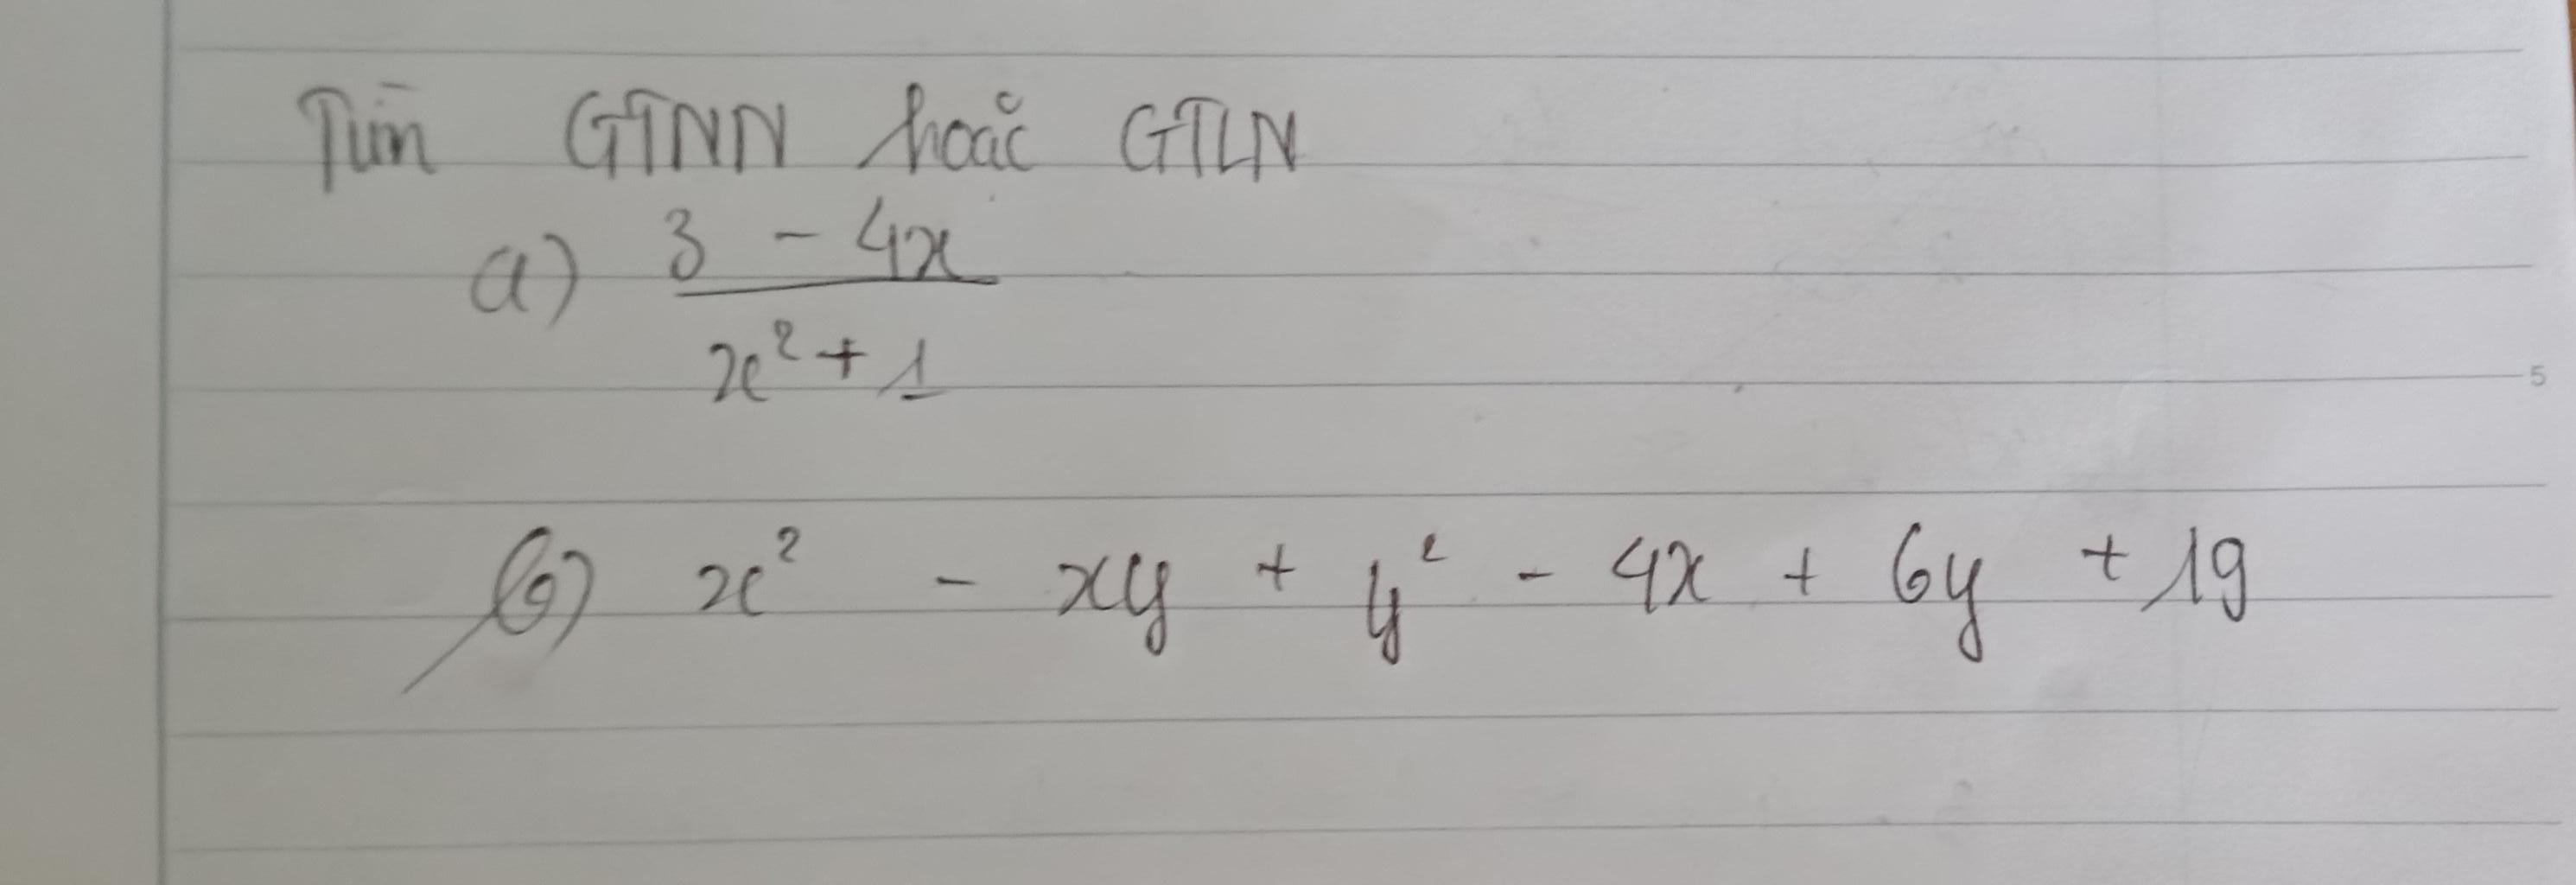 Tìm GTNN hoặc GTLN
a) 3 - 4x
x² + 1
5
b) x² - xy + y² - 4x + 6y + 19